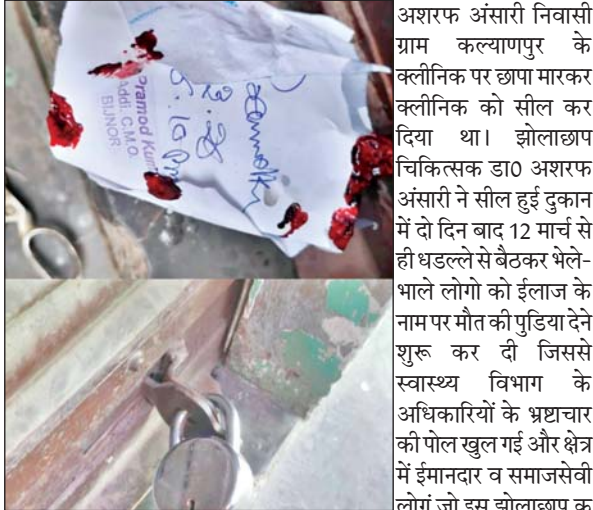 Pramod Kum
Addl. C.M.O.
BIJNOR
अशरफ अंसारी निवासी
ग्राम कल्याणपुर के
क्लीनिक पर छापा मारकर
क्लीनिक को सील कर
दिया था। झोलाछाप
चिकित्सक डा0 अशरफ
अंसारी ने सील हुई दुकान
में दो दिन बाद 12 मार्च से
ही धडल्ले से बैठकर भेले-
भाले लोगो को ईलाज के
नाम पर मौत की पुडिया देने
शुरू कर दी जिससे
स्वास्थ्य विभाग के
अधिकारियों के भ्रष्टाचार
की पोल खुल गई और क्षेत्र
में ईमानदार व समाजसेवी
लोगं जो इस झोलाछाप क